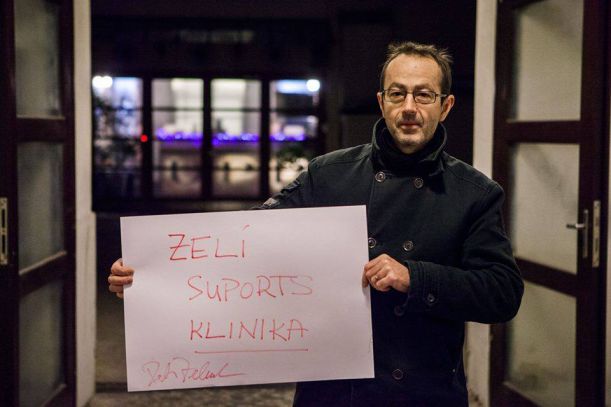 ZELÍ
SUPORTS
KLINIKA